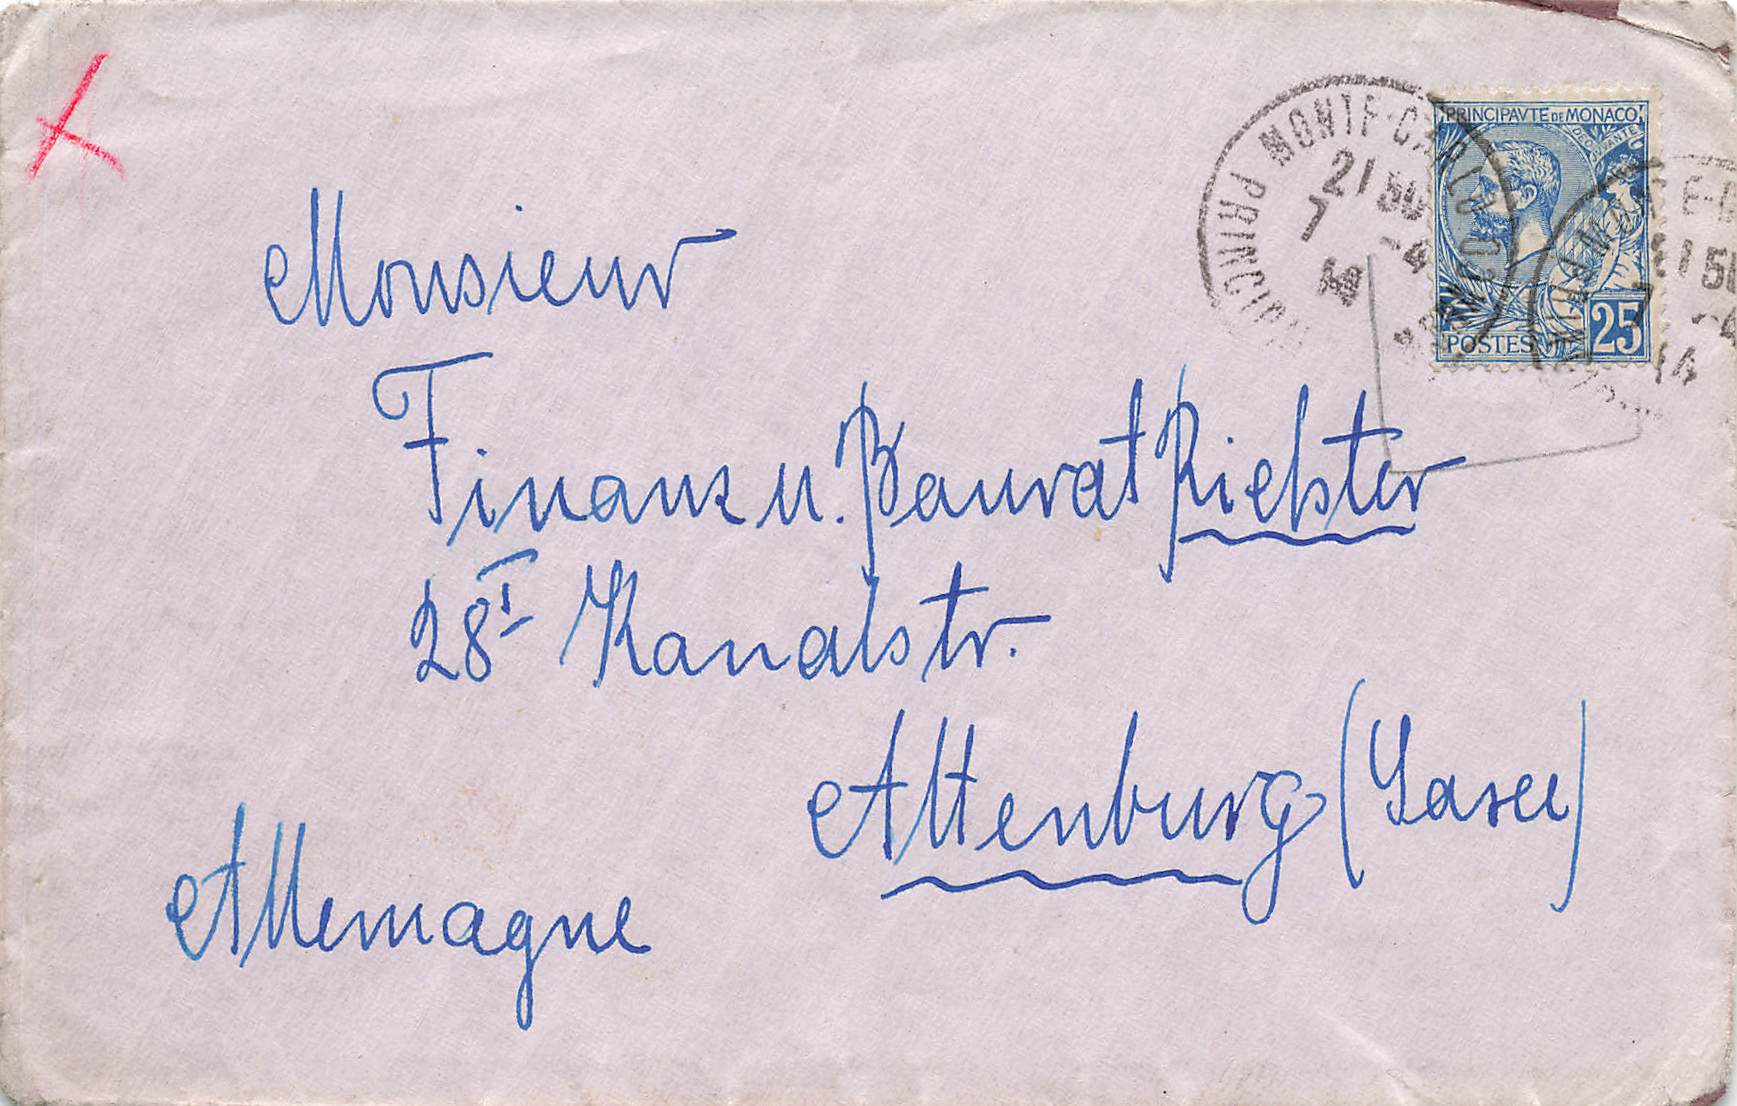 PRINCIPAVTE DE MONACO
POSTES
25
MONTE-CARLO
PRINCIPAUTE
21 50
7 -4
14
Monsieur
Finanz u. Baurat Richter
28 I Kanalstr.
Altenburg (
Allemagne